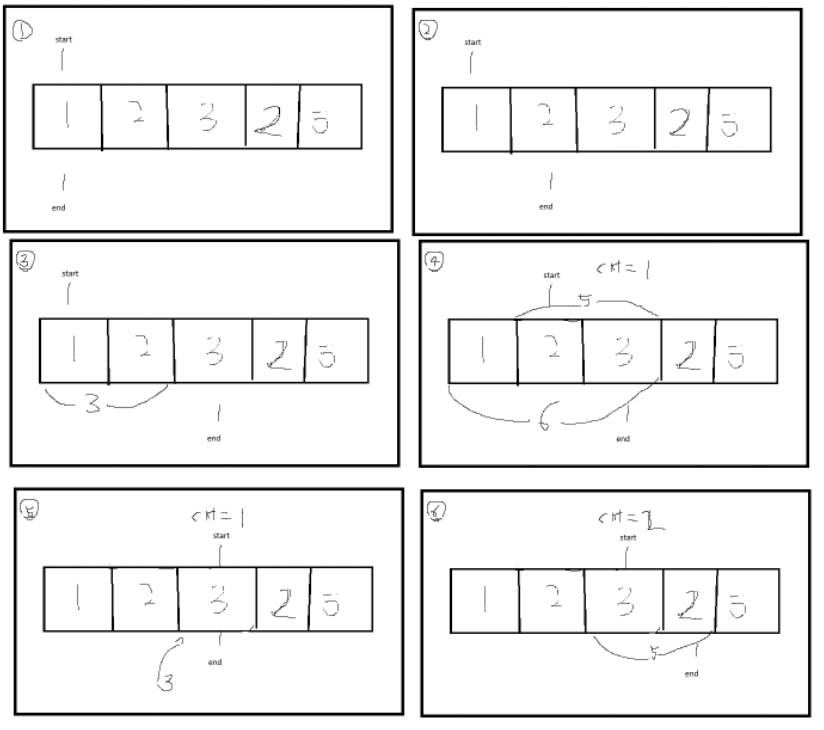 ①
start
1 2 3 2 5
end
②
start
1 2 3 2 5
end
③
start
1 2 3 2 5
3
end
④
cnt = 1
start
5
1 2 3 2 5
6
end
⑤
cnt = 1
start
1 2 3 2 5
end
3
⑥
cnt = 2
start
1 2 3 2 5
5
end